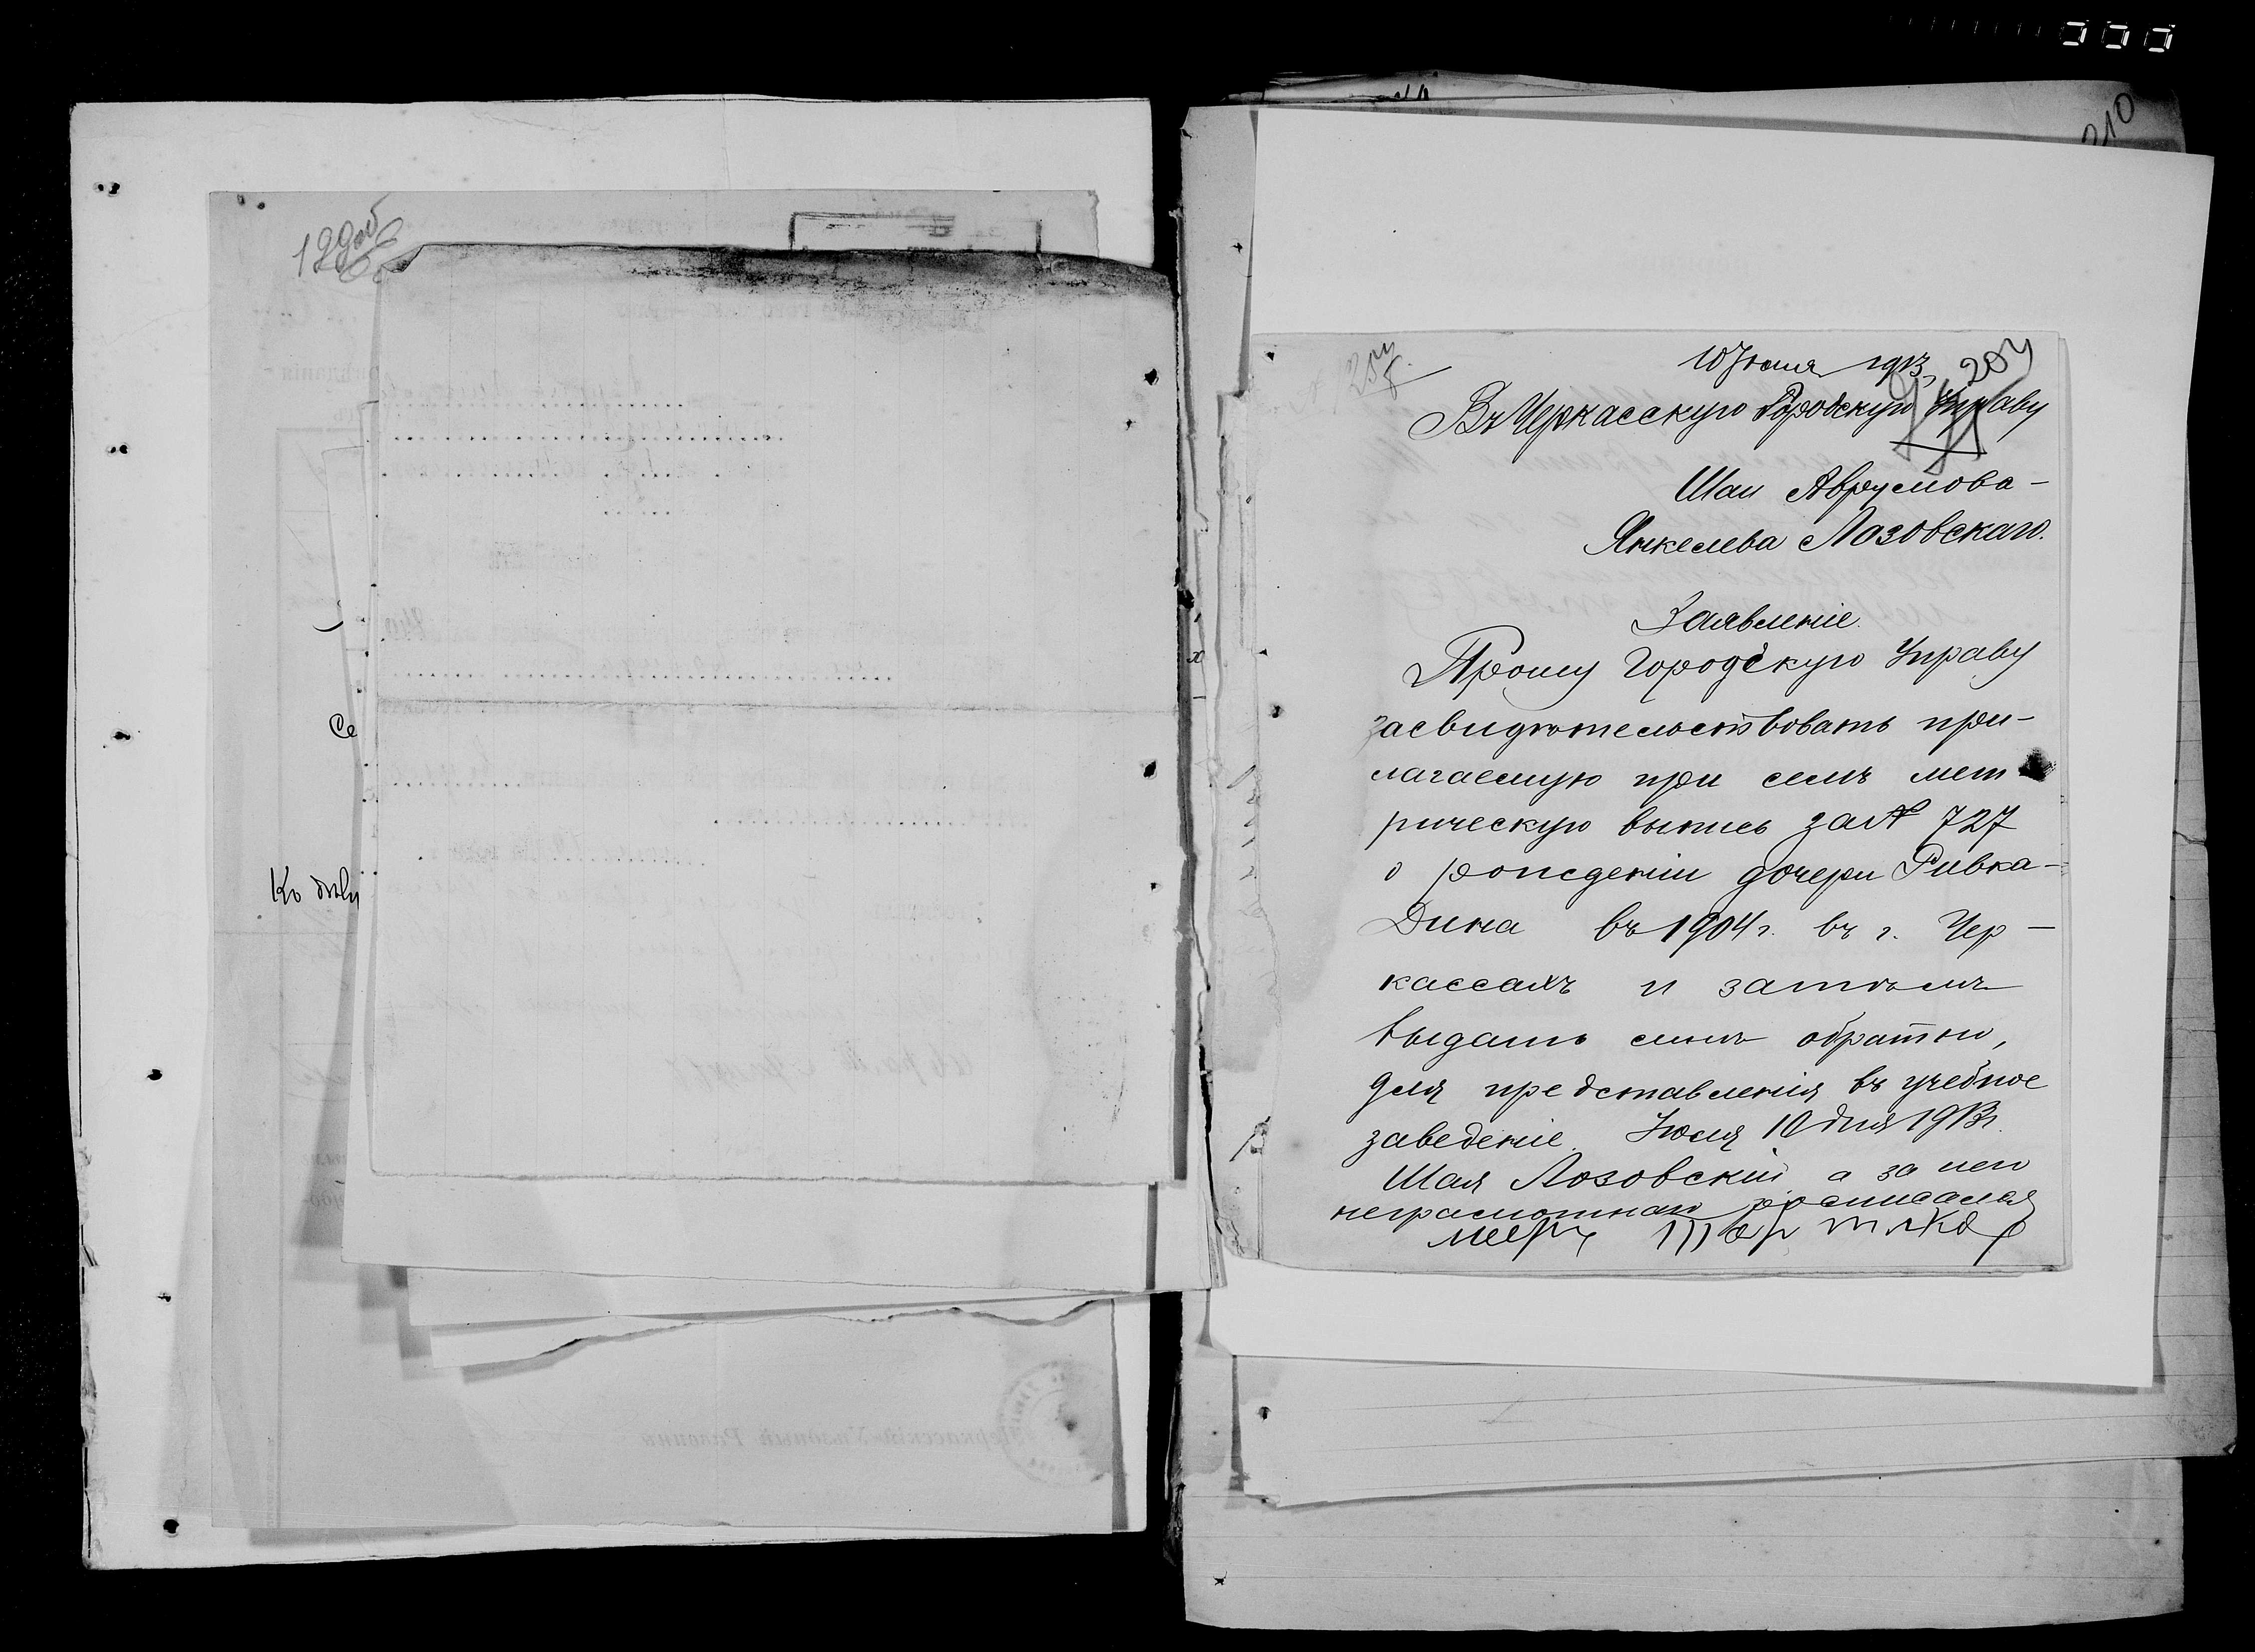 210
129 об
Се
Къ дѣлу
10 Іюля 1913
204
Въ Черкасскую Городскую Управу
Шаи Аврумова-
Янкелева Лозовскаго.
Заявленіе.
Прошу Городскую Управу
засвидѣтельствовать при-
лагаемую при семъ мет-
рическую выпись за № 727
о рожденіи дочери Ривка-
Дина въ 1904 г. въ г. Чер-
кассахъ и затѣмъ
выдать мнѣ обратно,
для представленія въ учебное
заведеніе. Іюля 10 дня 1913 г.
Шая Лозовскій а за него
неграмотнаго росписался